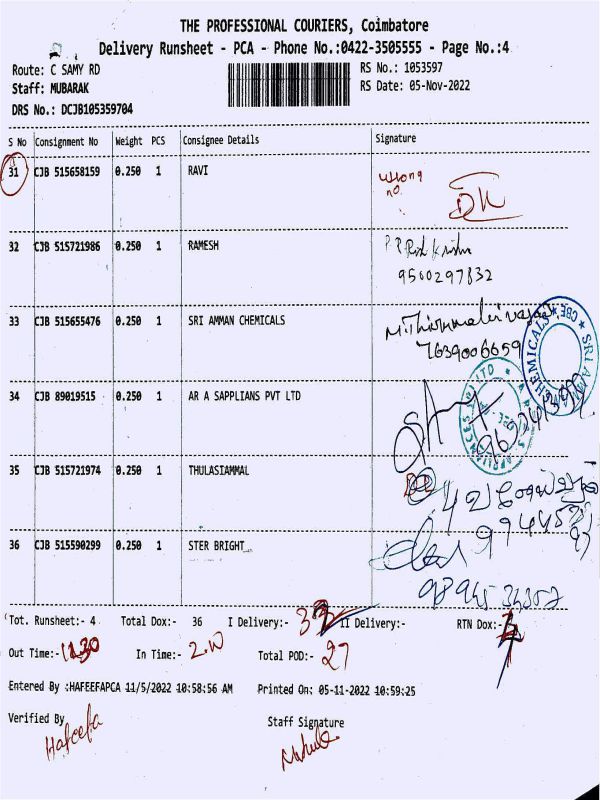 THE PROFESSIONAL COURIERS, Coimbatore
Delivery Runsheet - PCA - Phone No.:0422-3505555 - Page No.:4
Route: C SAMY RD RS No.: 1053597
Staff: MUBARAK RS Date: 05-Nov-2022
DRS No.: DCJB105359704
S No Consignment No Weight PCS Consignee Details Signature
31 CJB 515658159 0.250 1 RAVI wrong
no.
32 CJB 515721986 0.250 1 RAMESH
9500297832
33 CJB 515655476 0.250 1 SRI AMMAN CHEMICALS
7639006659
34 CJB 89019515 0.250 1 AR A SAPPLIANS PVT LTD
35 CJB 515721974 0.250 1 THULASIAMMAL
36 CJB 515590299 0.250 1 STER BRIGHT
Tot. Runsheet:- 4 Total Dox:- 36 I Delivery:- II Delivery:- RTN Dox:-
Out Time:- 11.30 In Time:- Total POD:- 27
Entered By :HAFEEFAPCA 11/5/2022 10:58:56 AM Printed On: 05-11-2022 10:59:25
Verified By Staff Signature
Hafeefa